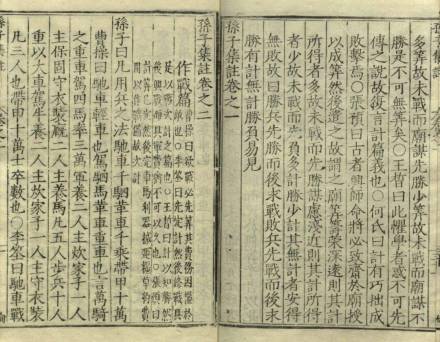 多筭故未戰而廟謀不
勝是不可無筭矣○王晳曰此懼學者惑不可先
傳之說故復言計篇義也○何氏曰計有巧拙成
敗繫焉○張預曰古者興師命將必致齋於廟授
以成筭然後遣之故謂之廟筭籌策深遠則其計
所得者多故未戰而先勝謀慮淺近則其計所得
者少故未戰而先負多計勝少計其無計者安得
無敗故曰勝兵先勝而後求戰敗兵先戰而後求
勝有計無計勝負易見
孫子集註卷之一
孫子集註卷之二
作戰篇
孫子曰凡用兵之法馳車千駟革車千乘帶甲十萬
曹操曰馳車輕車也駕駟馬革車重車也言萬騎
之重車駕四馬率三萬軍養二人主炊家子一人
主保固守衣裝廐二人主養馬凡五人步兵十人
重以大車駕牛養二人主炊家子一人主守衣裝
凡三人也帶甲十萬士卒數也○李筌曰馳車戰